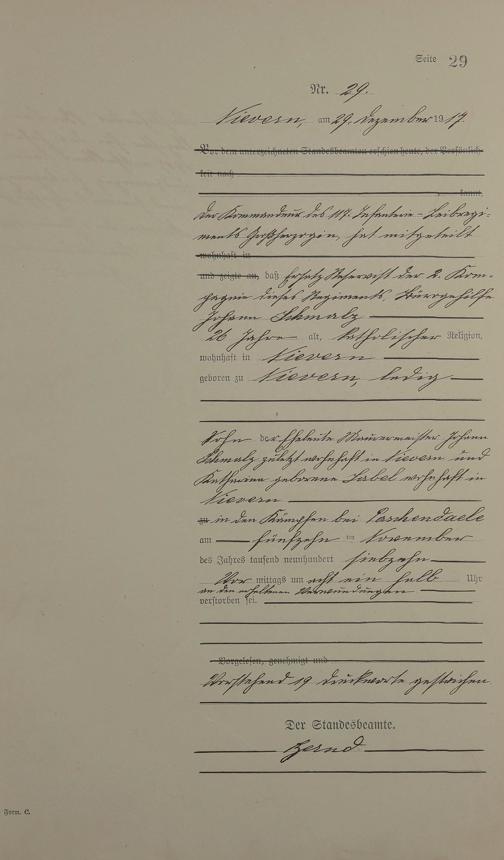 Seite 29
Nr. 29.
Nievern, am 29. Dezember 1917.
Vor dem unterzeichneten Standesbeamten erschien heute, der Persönlich-
keit nach
kannt,
Der Kommandeur des 117. Infanterie-Leibregi-
ments Großherzogin, hat mitgeteilt
wohnhaft in
und zeigte an, daß Ersatz Reservist der 2. Kom-
pagnie dieses Regiments, Bürogehilfe
Johann Schmalz
26 Jahre alt, katholischer Religion,
wohnhaft in Nievern
geboren zu Nievern, ledig
Sohn der Eheleute Maurermeister Johann
Schmalz zuletzt wohnhaft in Nievern und
Katharina geborene Isabel wohnhaft in
Nievern
in den Kämpfen bei Paschendaele
am fünfzehn ten November
des Jahres tausend neunhundert siebzehn
Vor mittags um acht ein halb Uhr
an den erhaltenen Verwundungen
verstorben sei.
Vorgelesen, genehmigt und
Vorstehend 19 Druckworte gestrichen
Der Standesbeamte.
Form. C.